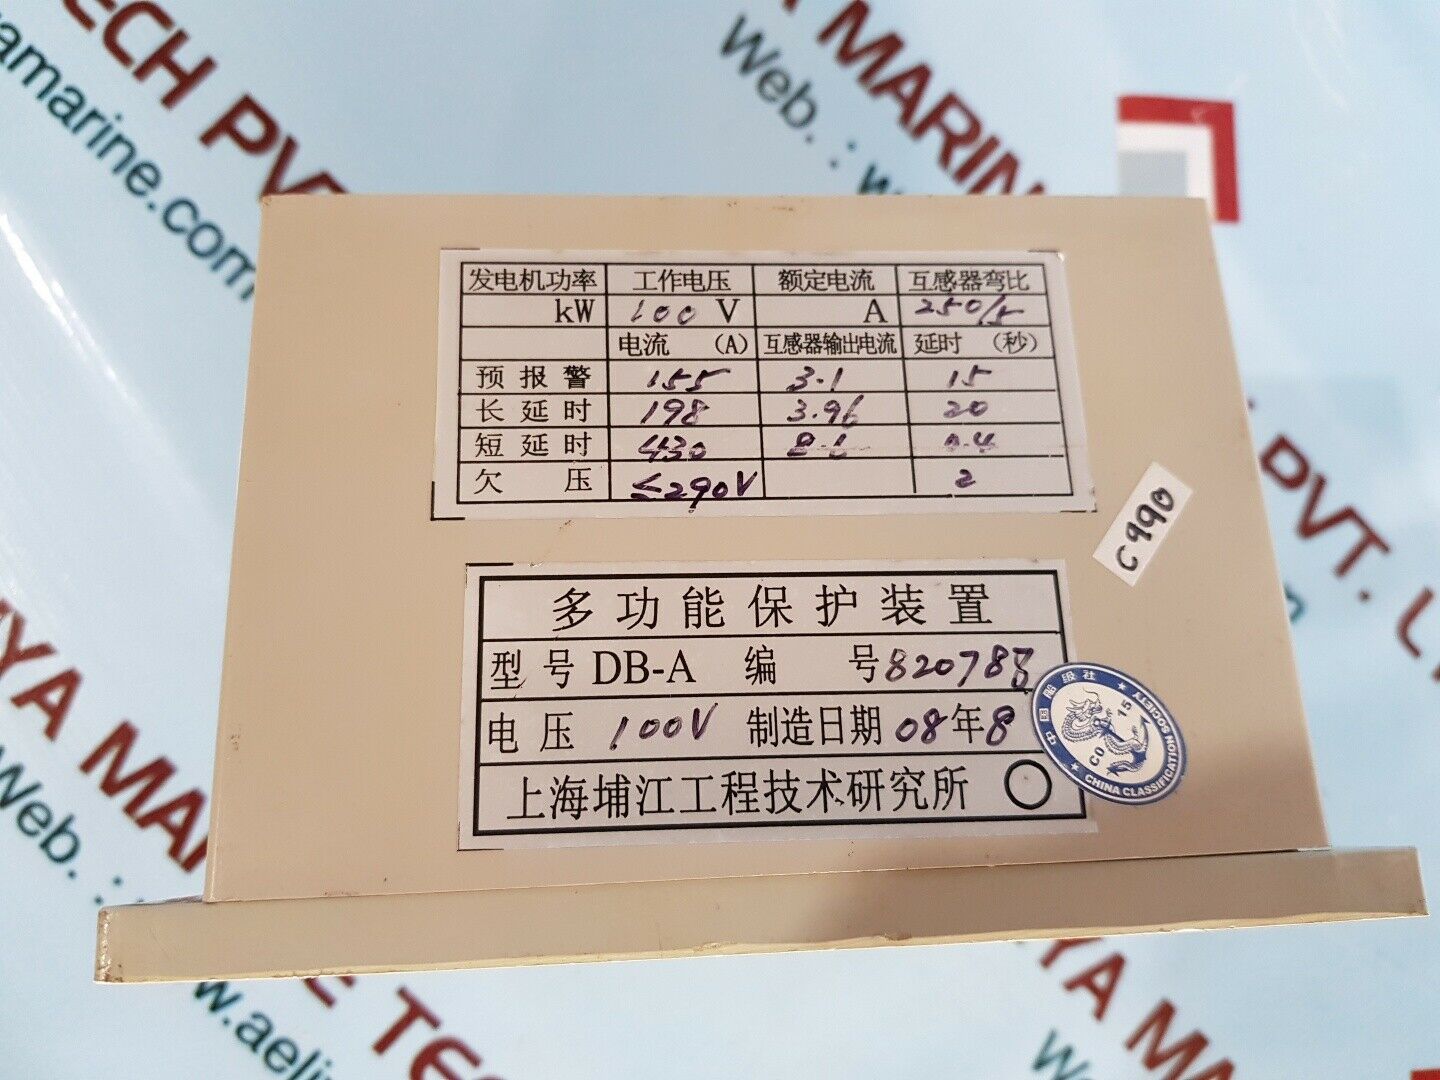 发电机功率 工作电压 额定电流 互感器弯比
kW 100 V A 250/5
电流 (A) 互感器输出电流 延时 (秒)
预报警 155 3.1 15
长延时 198 3.96 20
短延时 430 8.6 0.4
欠压 ≤290V 2
C990
多功能保护装置
型号 DB-A 编号 820788
电压 100V 制造日期 08年8
上海埔江工程技术研究所
中国船级社
CHINA CLASSIFICATION SOCIETY
CO 15
TECH PVT
amarine.com
YA MARIN
Web. : w
PVT. L
YA MARINE TE
Web. :
w.aelj
YA MA
We